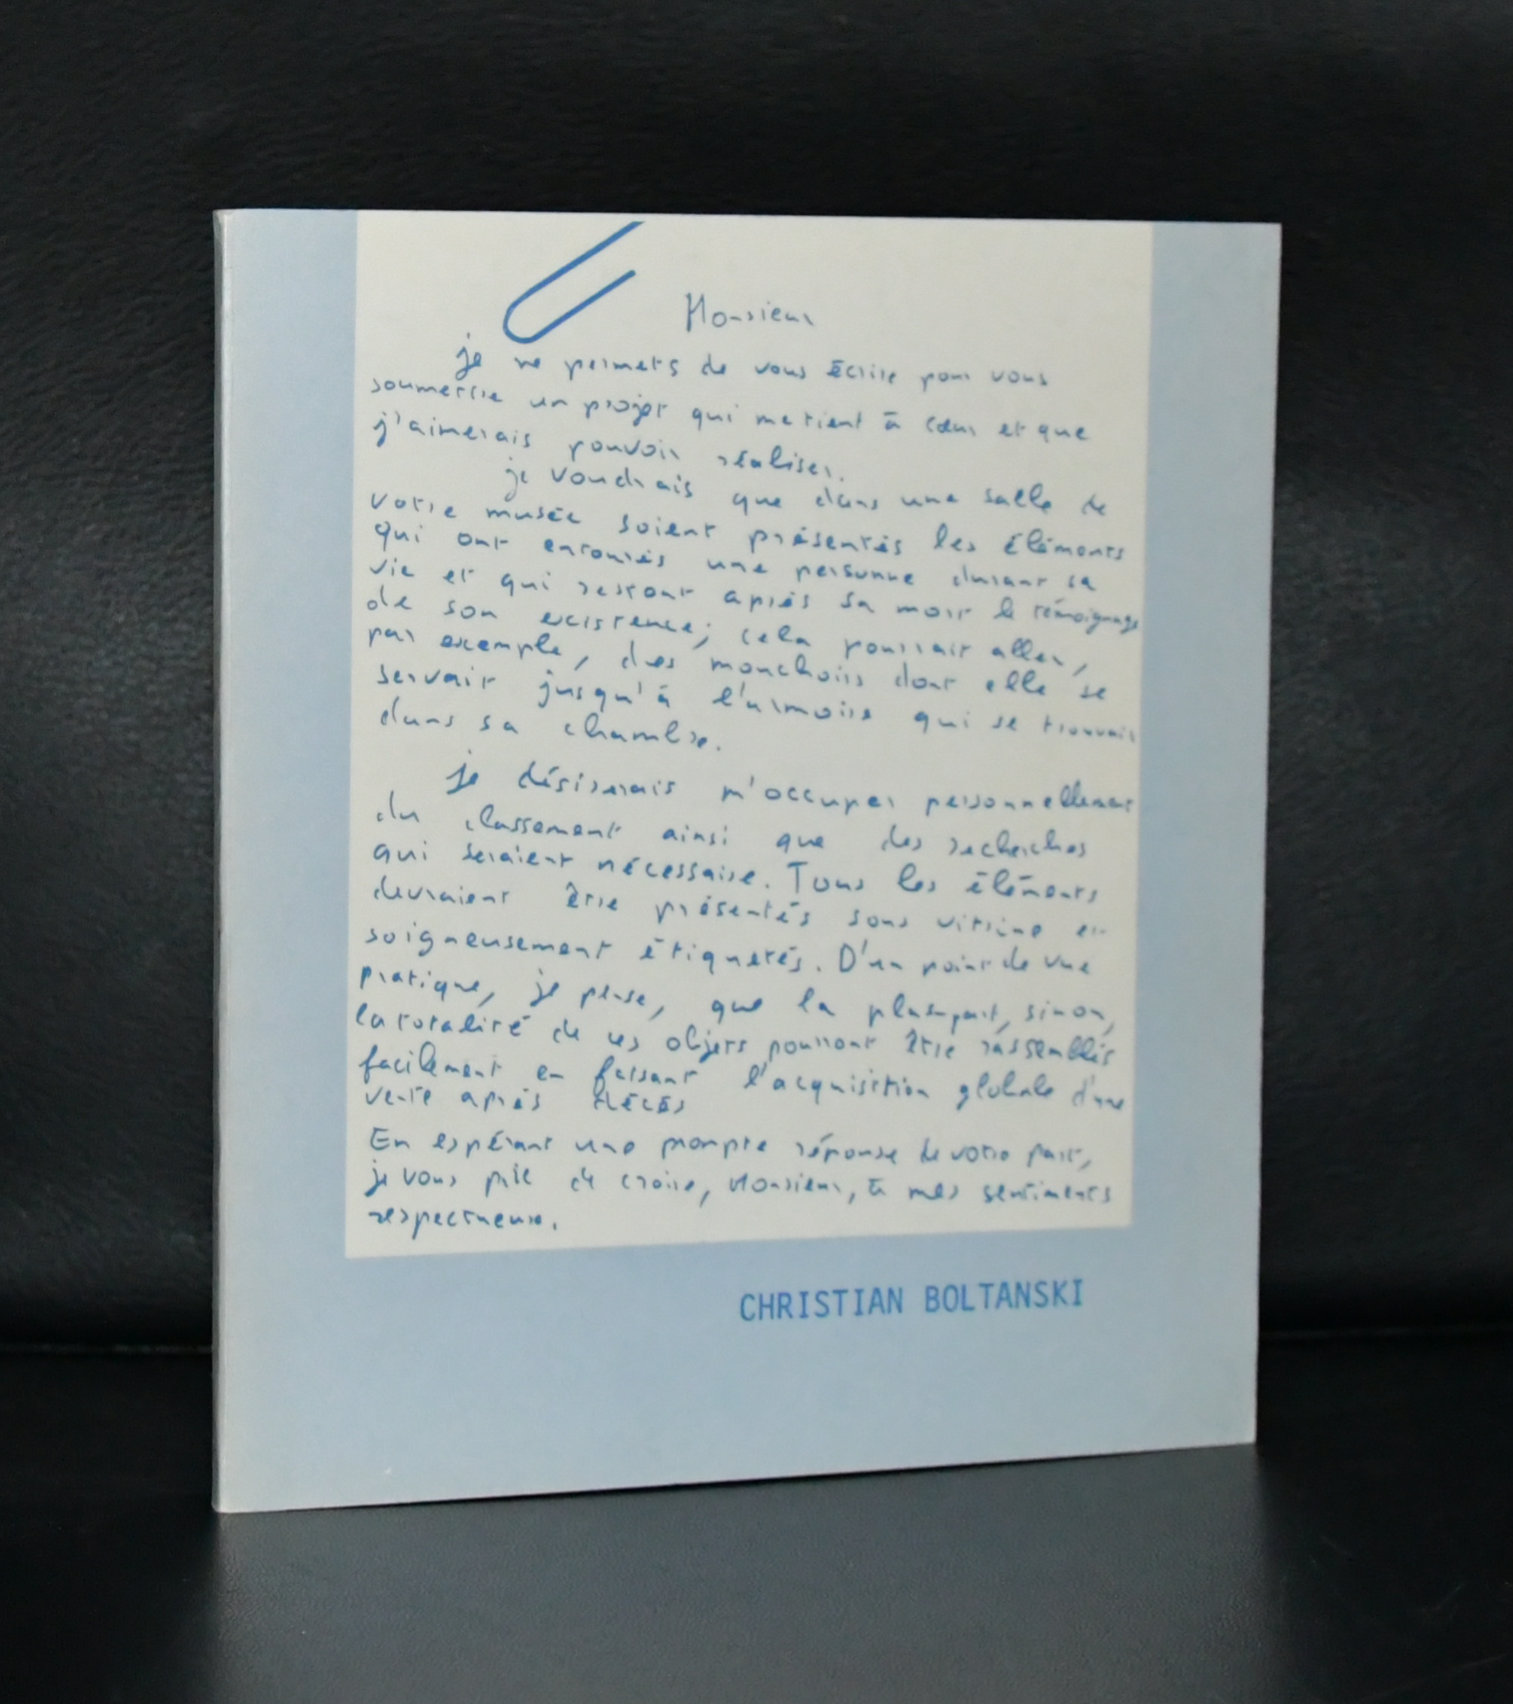 Monsieur
je me permets de vous écrire pour vous
soumettre un projet qui me tient à cœur et que
j'aimerais pouvoir réaliser.
je voudrais que dans une salle de
votre musée soient présentés les éléments
qui ont entourés une personne durant sa
vie et qui restent après sa mort le témoignage
de son existence; cela pourrait aller,
par exemple, des mouchoirs dont elle se
servait jusqu'à l'armoire qui se trouvait
dans sa chambre.
Je désirerais m'occuper personnellement
du classement ainsi que des recherches
qui seraient nécessaire. Tous les éléments
devraient être présentés sous vitrine et
soigneusement étiquetés. D'un point de vue
pratique, je pense, que la plupart, sinon,
la totalité de ces objets pourront être rassemblés
facilement en faisant l'acquisition globale d'une
vente après décès
En espérant une prompte réponse de votre part,
je vous prie de croire, Monsieur, à mes sentiments
respectueux.
CHRISTIAN BOLTANSKI